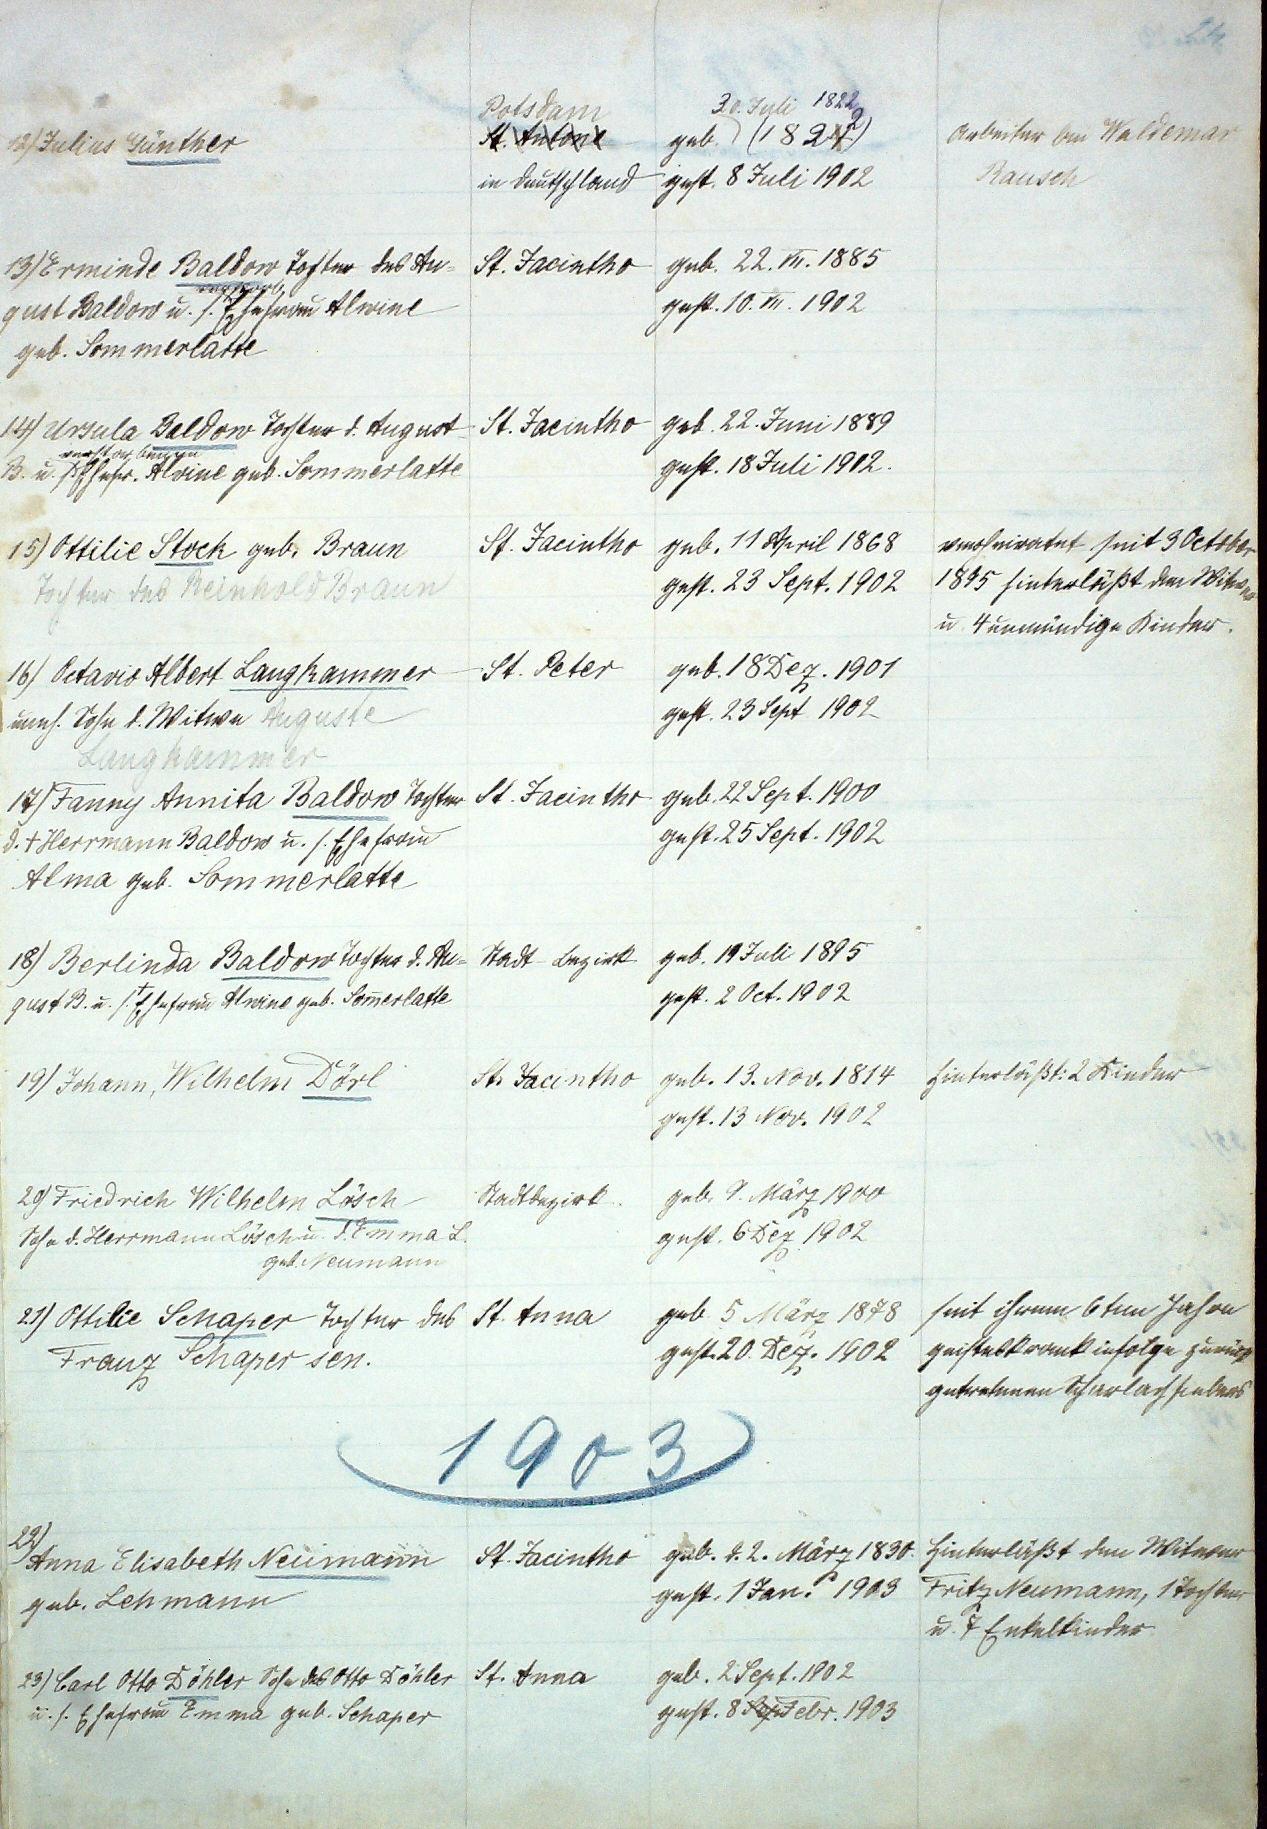 Potsdam 30. Juli 1822
12) Julius Günther St. Antone geb. (182 ) Arbeiter bei Waldemar
in Deutschland gest. 8 Juli 1902 Rausch
13) Erminde Baldow Tochter des Au= St. Jacintho geb. 22. VII. 1885
verstorb.
gust Baldow u. s. Ehefrau Alwine gest. 10. VII. 1902
geb. Sommerlatte
14) Ursula Baldow Tochter d. August St. Jacintho geb. 22. Juni 1889
verstorbenen
B. u. s. Ehefr. Alvine geb. Sommerlatte gest. 18 Juli 1902.
15) Ottilie Stock geb. Braun St. Jacintho geb. 11 April 1868 verheiratet seit 3 October
Tochter des Reinhold Braun gest. 23 Sept. 1902 1895 hinterläßt den Witwer
u. 4 unmündige Kinder.
16) Octavio Albert Langhammer St. Peter geb. 18 Dez. 1901
uneh. Sohn d. Witwe Auguste gest. 23 Sept 1902
Langhammer
17) Fanny Annita Baldow Tochter St. Jacintho geb. 22 Sept. 1900
d. † Herrmann Baldow u. s. Ehefrau gest. 25 Sept. 1902
Alma geb. Sommerlatte
18) Berlinda Baldow Tochter d. Au= Stadt-bezirk geb. 19 Juli 1895
gust B. u. s. † Ehefrau Alwine geb. Som̄erlatte gest. 2 Oct. 1902
19) Johann, Wilhelm Dörl St. Jacintho geb. 13. Nov. 1814 hinterläßt: 2 Kinder
gest. 13 Nov. 1902
20) Friedrich Wilhelm Lösch Stadtbezirk geb. 9. März 1900
Sohn d. Herrmann Lösch u. d. Emma L. gest. 6 Dez 1902
geb. Neumann
21) Ottilie Schaper Tochter des St. Anna geb 5 März 1878 seit ihrem 6ten Jahre
Franz Schaper sen. gest. 20. Dez. 1902 geisteskrank infolge zurück
getretenen Scharlachfiebers
1903
22)
Anna Elisabeth Neumann St. Jacintho geb. d. 2. März 1830. hinterläßt den Witwer
geb. Lehmann gest. 1 Jan. 1903 Fritz Neumann, 1 Tochter
u. 7 Enkelkinder
23) Carl Otto Döhler Sohn des Otto Döhler St. Anna geb. 2 Sept. 1902
u. s. Ehefrau Emma geb. Schaper gest. 8 Sep Febr. 1903